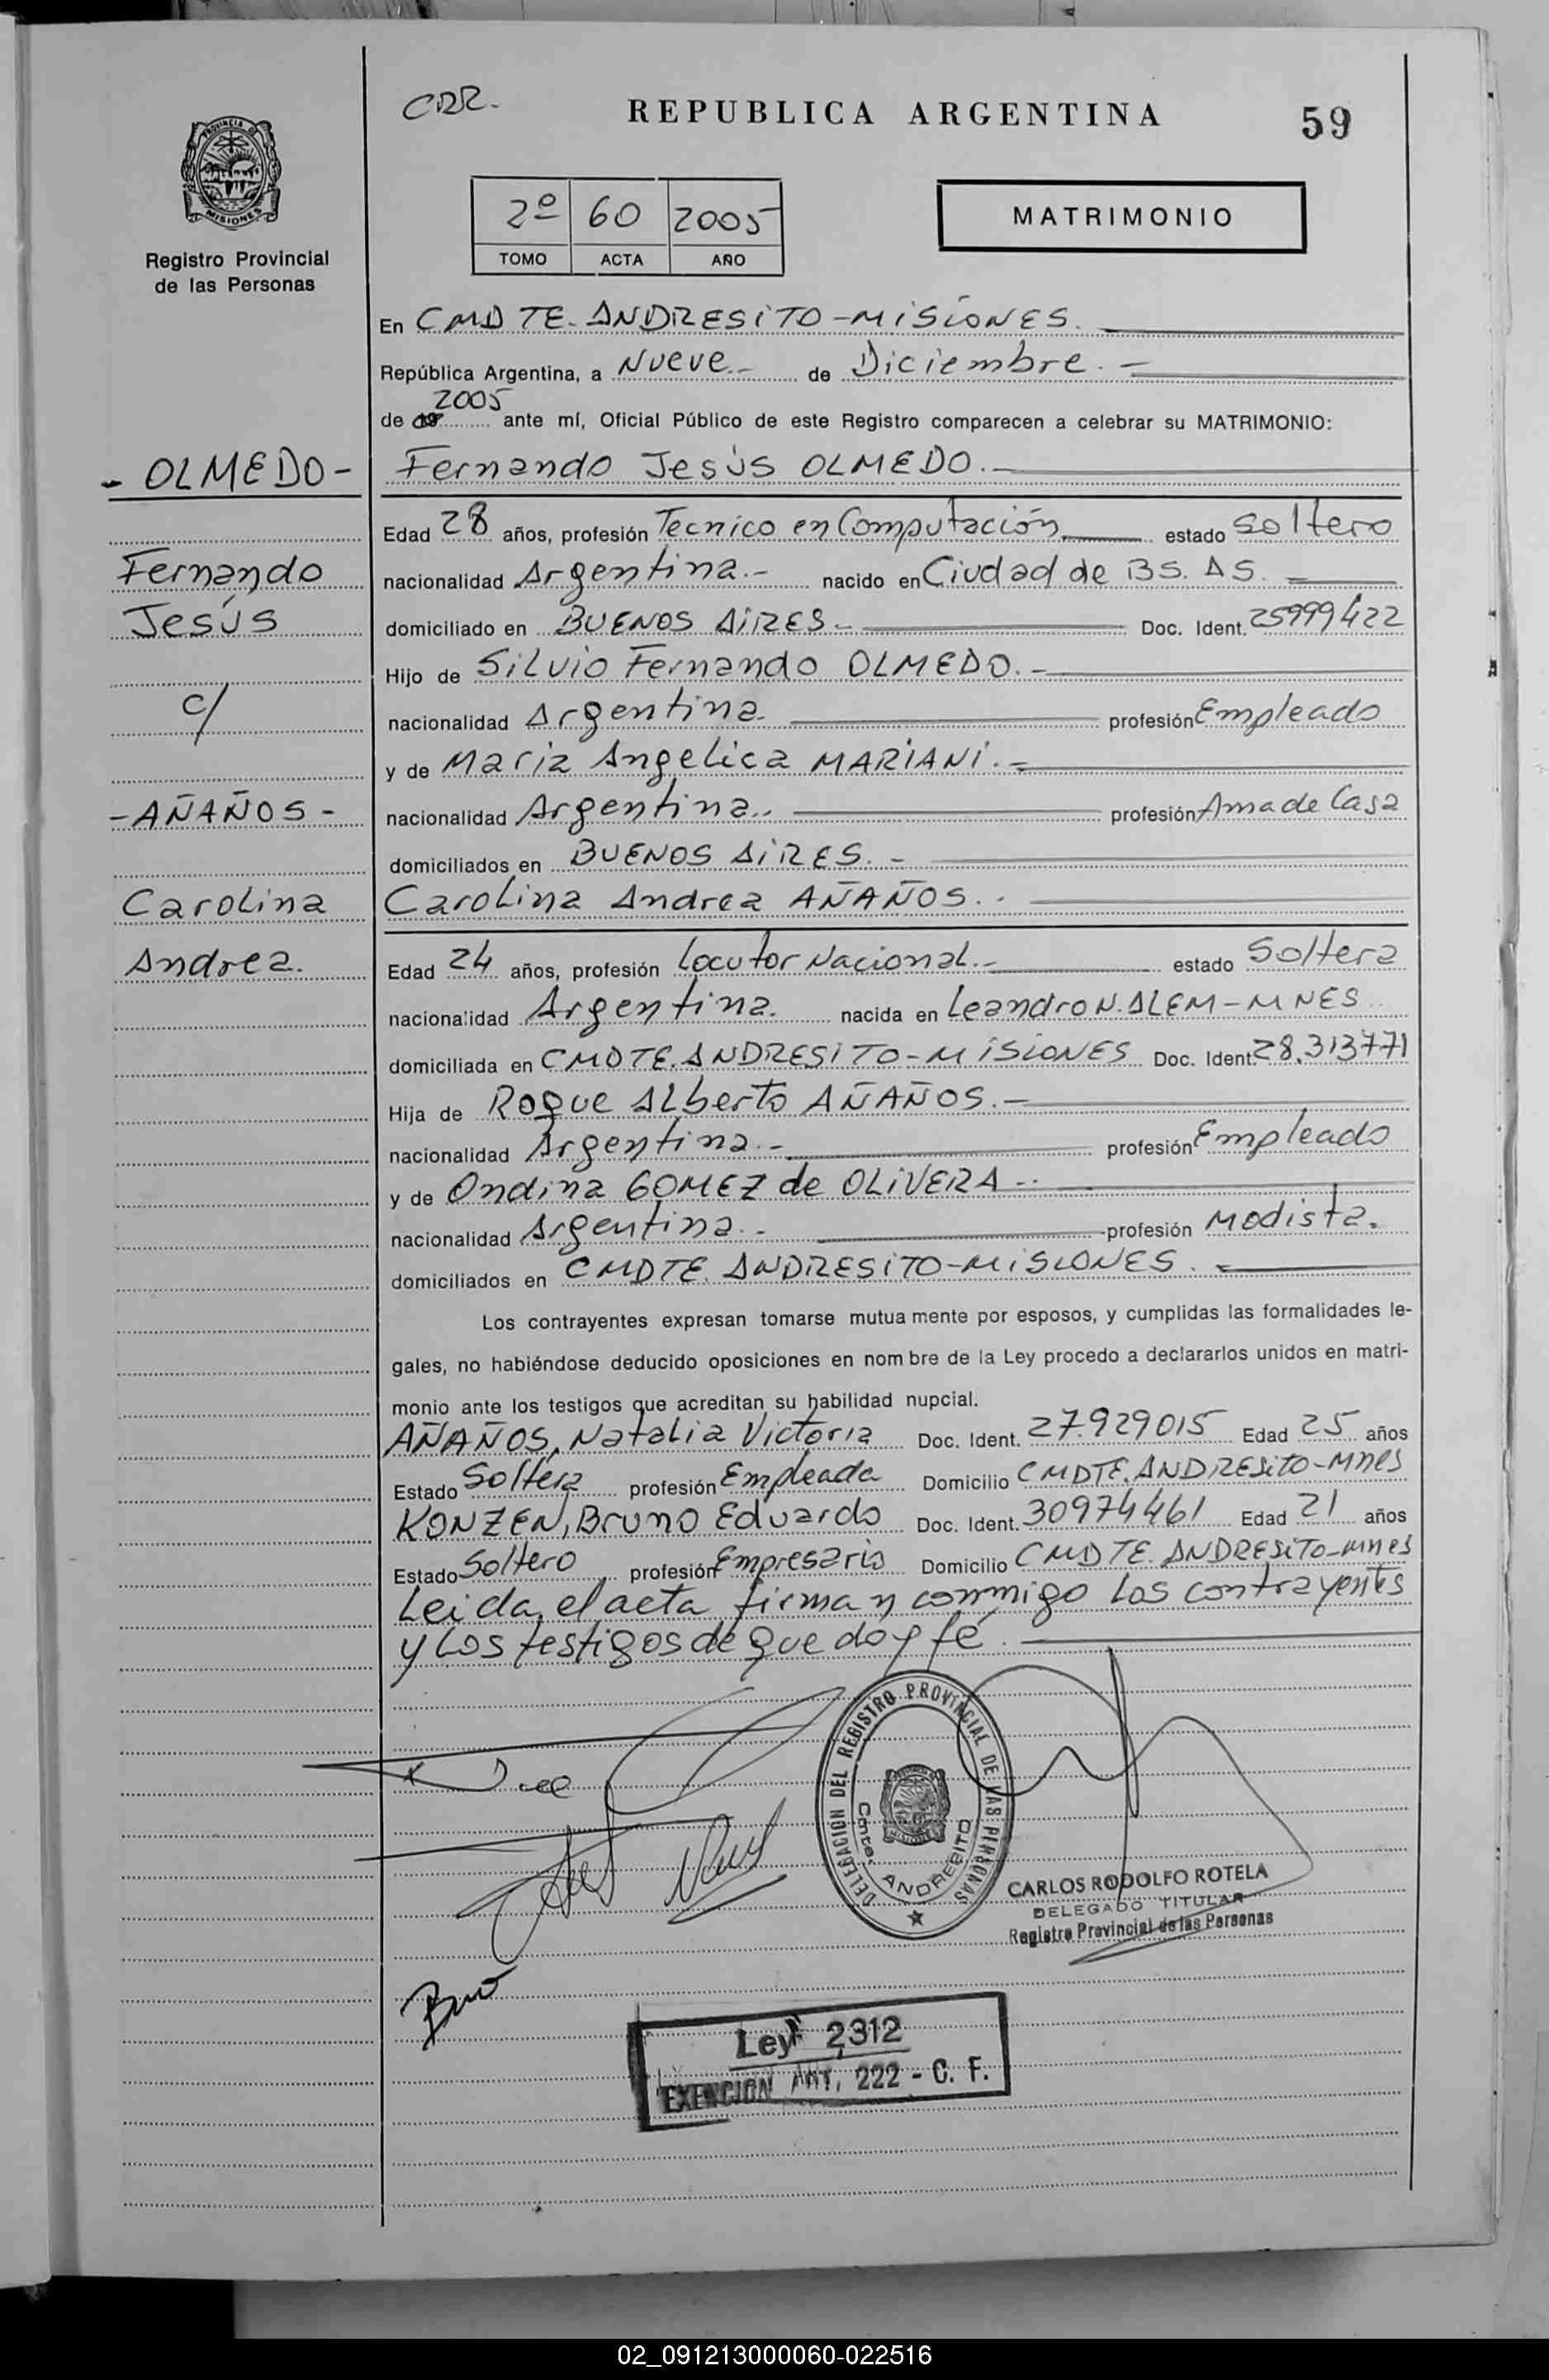 CRR.
REPUBLICA ARGENTINA
59
PROVINCIA DE
MISIONES
Registro Provincial
de las Personas
2º 60 2005
TOMO ACTA AÑO
MATRIMONIO
En CMDTE. ANDRESITO - MISIONES.
República Argentina, a Nueve.- de Diciembre.-
2005
de 19 ante mí, Oficial Público de este Registro comparecen a celebrar su MATRIMONIO:
- OLMEDO -
Fernando Jesús OLMEDO.-
Edad 28 años, profesión Tecnico en Computación estado Soltero
Fernando
nacionalidad Argentina.- nacido en Ciudad de BS. AS.
Jesús
domiciliado en BUENOS AIRES.- Doc. Ident. 25999422
Hijo de Silvio Fernando OLMEDO.-
c/
nacionalidad Argentina. profesión Empleado
y de Maria Angelica MARIANI.-
- AÑAÑOS -
nacionalidad Argentina.. profesión Ama de Casa
domiciliados en BUENOS AIRES.-
Carolina
Carolina Andrea AÑAÑOS..
Andrea.
Edad 24 años, profesión Locutor Nacional.- estado Soltera
nacionalidad Argentina. nacida en Leandro N. ALEM - MNES
domiciliada en CMDTE. ANDRESITO - MISIONES Doc. Ident. 28.313771
Hija de Roque Alberto AÑAÑOS.-
nacionalidad Argentina.- profesión Empleado
y de Ondina GOMEZ de OLIVERA -..
nacionalidad Argentina.- profesión Modista.
domiciliados en CMDTE. ANDRESITO - MISIONES.
Los contrayentes expresan tomarse mutua mente por esposos, y cumplidas las formalidades le-
gales, no habiéndose deducido oposiciones en nom bre de la Ley procedo a declararlos unidos en matri-
monio ante los testigos que acreditan su habilidad nupcial.
AÑAÑOS, Natalia Victoria Doc. Ident. 27.929015 Edad 25 años
Estado Soltera profesión Empleada Domicilio CMDTE. ANDRESITO - Mnes
KONZEN, Bruno Eduardo Doc. Ident. 30974461 Edad 21 años
Estado Soltero profesión Empresario Domicilio CMDTE. ANDRESITO - mnes
Leida, el acta firman conmigo los contrayentes
y los testigos de que doy fé.
DELEGACION DEL REGISTRO PROVINCIAL DE LAS PERSONAS
Cmte. ANDRESITO
CARLOS RODOLFO ROTELA
DELEGADO TITULAR
Registro Provincial de las Personas
Ley 2312
EXENCION ART. 222 - C. F.
02_091213000060-022516